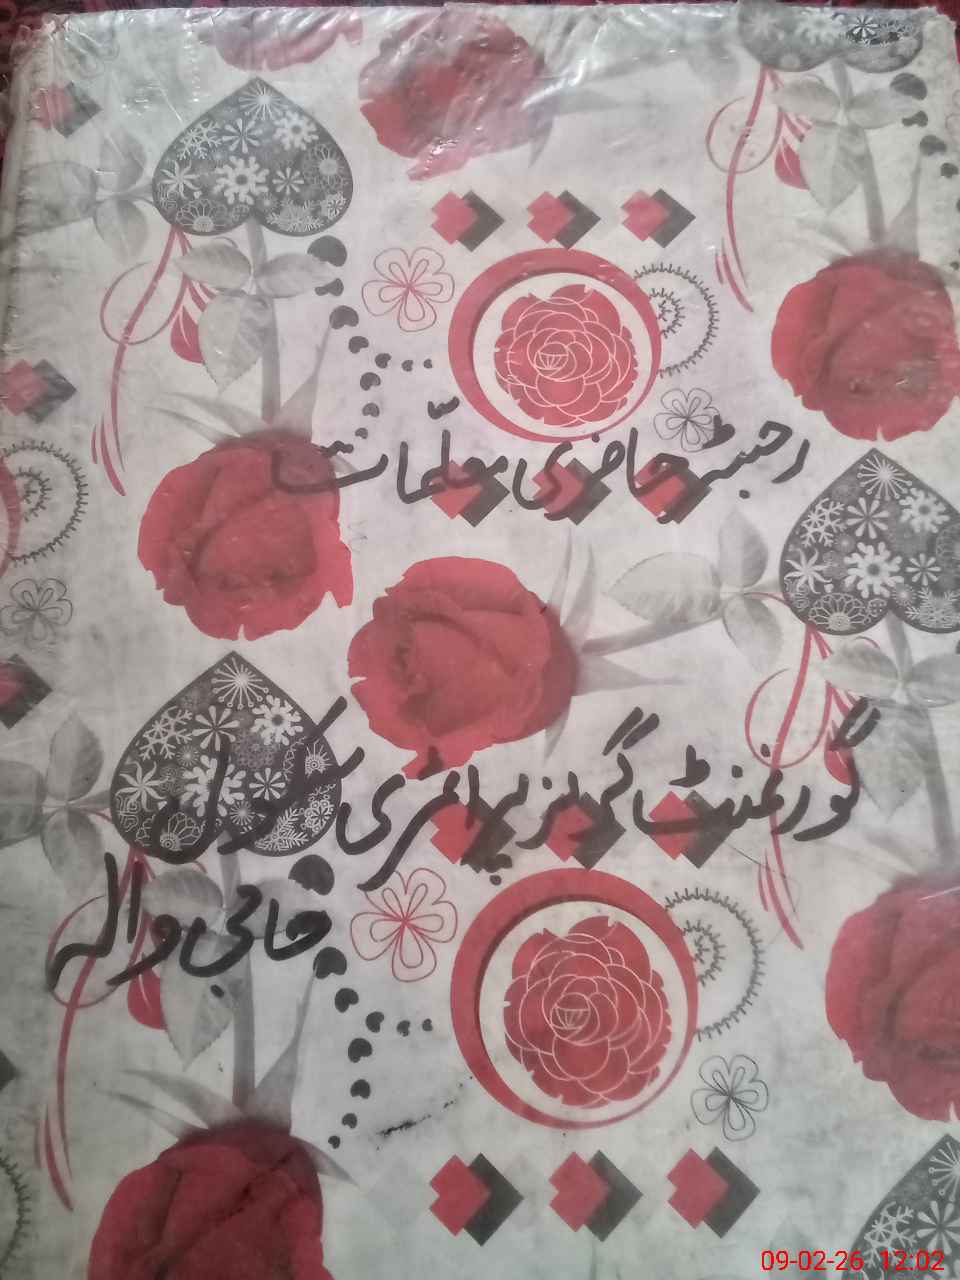 رجسٹر حاضری معلّمات
گورنمنٹ گرلز پرائمری سکول
حاجی والہ
09-02-26 12:02